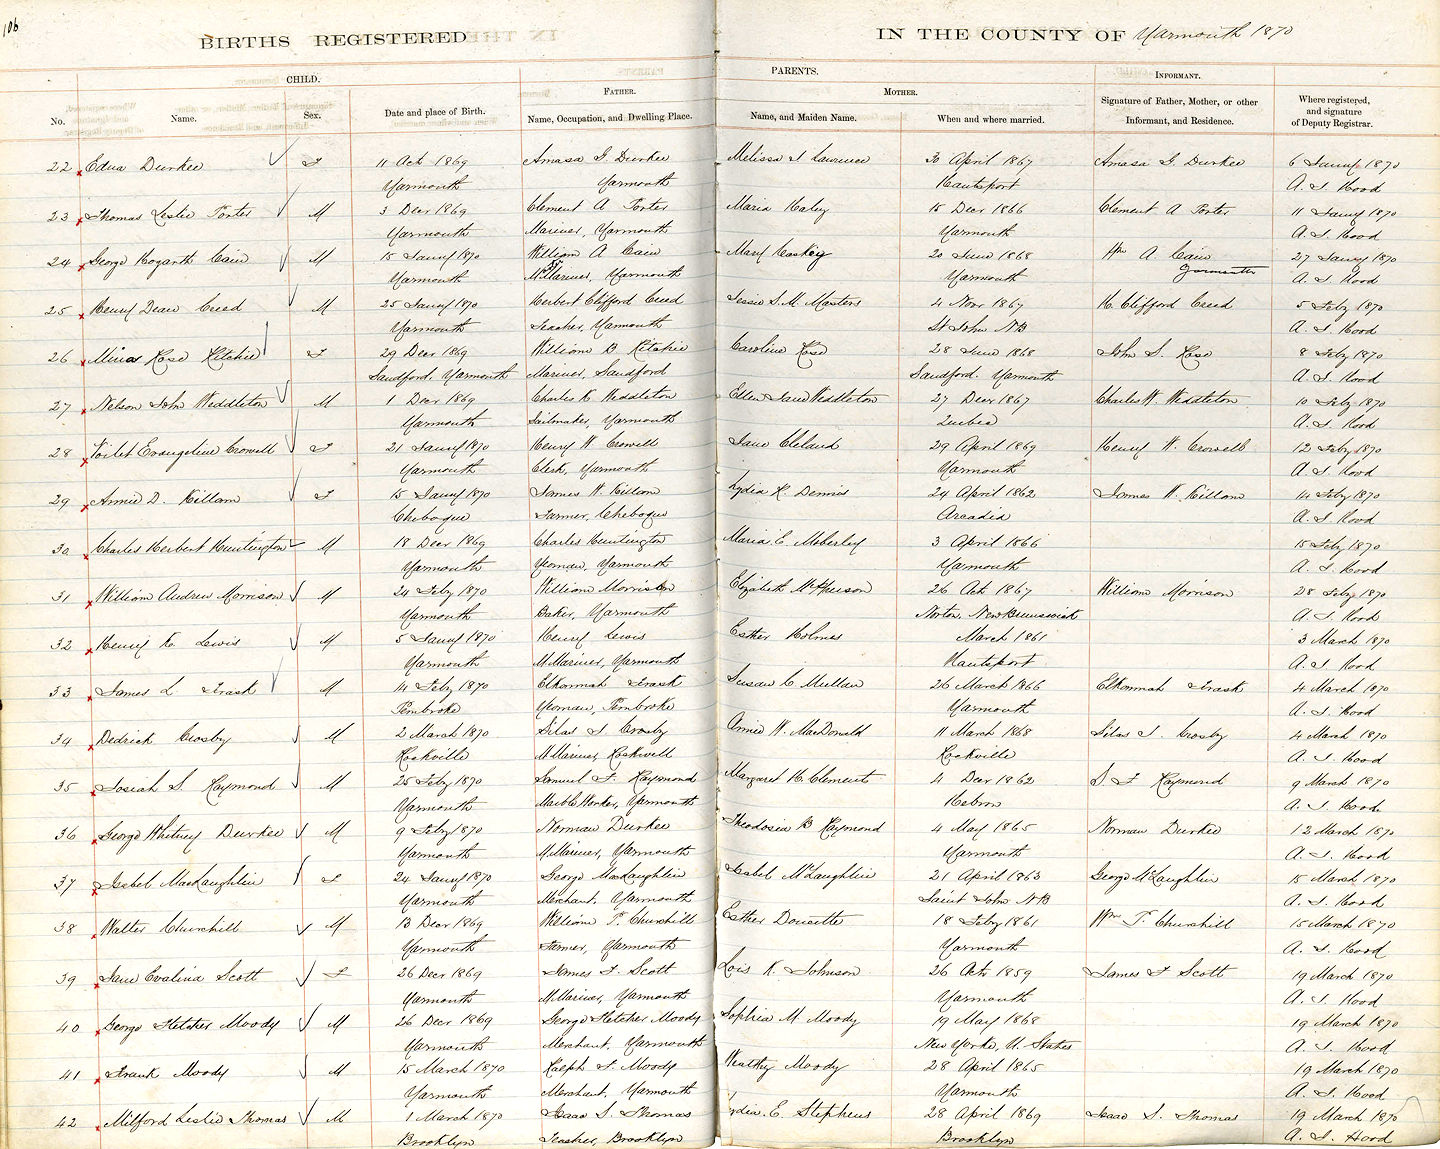 106
BIRTHS REGISTERED IN THE COUNTY OF Yarmouth 1870
CHILD. PARENTS. INFORMANT.
FATHER. MOTHER.
No. Name. Sex. Date and place of Birth. Name, Occupation, and Dwelling Place. Name, and Maiden Name. When and where married. Signature of Father, Mother, or other Informant, and Residence. Where registered, and signature of Deputy Registrar.
22 Edna Durkee F 11 Oct 1869 Amasa G Durkee Melissa J Lawrence 30 April 1867 Amasa G Durkee 6 Jany 1870
Yarmouth Yarmouth Hantsport A. J. Hood
23 Thomas Leslie Porter M 3 Decr 1869 Clement A Porter Maria Haley 15 Decr 1866 Clement A Porter 11 Jany 1870
Yarmouth Mariner, Yarmouth Yarmouth A. J. Hood
24 George Hogarth Cain M 15 Jany 1870 William A Cain Mary Haskey 20 June 1868 Wm A Cain 27 Jany 1870
Yarmouth Mariner, Yarmouth Yarmouth A. J. Hood
25 Henry Dean Creed M 25 Jany 1870 Herbert Clifford Creed Jessie S. M. Masters 4 Novr 1867 H. Clifford Creed 5 Feby 1870
Yarmouth Teacher, Yarmouth St John NB A. J. Hood
26 Mina Rose Ritchie F 29 Decr 1869 William B Ritchie Caroline Rose 28 June 1868 John S. Rose 8 Feby 1870
Sandford. Yarmouth Mariner, Sandford Sandford. Yarmouth A. J. Hood
27 Nelson John Weddleton M 1 Decr 1869 Charles W. Weddleton Ellen Jane Weddleton 27 Decr 1867 Charles W. Weddleton 10 Feby 1870
Yarmouth Sailmaker, Yarmouth Quebec A. J. Hood
28 Violet Evangeline Crowell F 21 Jany 1870 Henry W. Crowell Jane Cleland 29 April 1869 Henry W. Crowell 12 Feby 1870
Yarmouth Clerk, Yarmouth Yarmouth A. J. Hood
29 Annie D. Killam F 15 Jany 1870 James W. Killam Lydia K. Dennis 24 April 1862 James W. Killam 14 Feby 1870
Chebogue Farmer, Chebogue Arcadia A. J. Hood
30 Charles Herbert Huntington M 18 Decr 1869 Charles Huntington Maria. E. Moberley 3 April 1866 15 Feby 1870
Yarmouth Yeoman, Yarmouth Yarmouth A. J. Hood
31 William Andrew Morrison M 24 Feby 1870 William Morrison Elizabeth McPherson 26 Oct 1867 William Morrison 28 Feby 1870
Yarmouth Baker, Yarmouth Norton, New Brunswick A. J. Hood
32 Henry K. Lewis M 5 Jany 1870 Henry Lewis Esther Holmes March 1861 3 March 1870
Yarmouth M. Mariner, Yarmouth Hantsport A. J. Hood
33 James L Trask M 14 Feby 1870 Elkannah Trask Susan C Mullan 26 March 1866 Elkannah Trask 4 March 1870
Pembroke Yeoman, Pembroke Yarmouth A. J. Hood
34 Dedrick Crosby M 2 March 1870 Silas J Crosby Annie W. MacDonald 11 March 1868 Silas J. Crosby 4 March 1870
Rockville M. Mariner, Rockvill Rockville A. J. Hood
35 Josiah S. Raymond M 25 Feby 1870 Samuel F. Raymond Margaret H. Clements 4 Decr 1862 S. F Raymond 9 March 1870
Yarmouth Marble Worker, Yarmouth Hebron A. J. Hood
36 George Whitney Durkee M 9 Feby 1870 Norman Durkee Theodosia B Raymond 4 May 1865 Norman Durkee 12 March 1870
Yarmouth M. Mariner, Yarmouth Yarmouth A. J. Hood
37 Isabel MacLaughlin F 24 Jany 1870 George MacLaughlin Isabel McLaughlin 21 April 1863 George McLaughlin 15 March 1870
Yarmouth Merchant, Yarmouth Saint John NB A. J. Hood
38 Walter Churchill M 13 Decr 1869 William T. Churchill Esther Doucette 18 Feby 1861 Wm T. Churchill 15 March 1870
Yarmouth Farmer, Yarmouth Yarmouth A. J. Hood
39 Jane Evalina Scott F 26 Decr 1869 James F. Scott Lois K. Johnson 26 Oct 1859 James F Scott 19 March 1870
Yarmouth M. Mariner, Yarmouth Yarmouth A. J. Hood
40 George Fletcher Moody M 26 Decr 1869 George Fletcher Moody Sophia M. Moody 19 May 1868 19 March 1870
Yarmouth Merchant, Yarmouth New Yorke, U. States A. J. Hood
41 Frank Moody M 15 March 1870 Ralph F. Moody Wealthy Moody 28 April 1865 19 March 1870
Yarmouth Merchant, Yarmouth Yarmouth A. J. Hood
42 Milford Leslie Thomas M 1 March 1870 Isaac S. Thomas Lydia. E Stephens 28 April 1869 Isaac S. Thomas 19 March 1870
Brooklyn Teacher, Brooklyn Brooklyn A. J. Hood